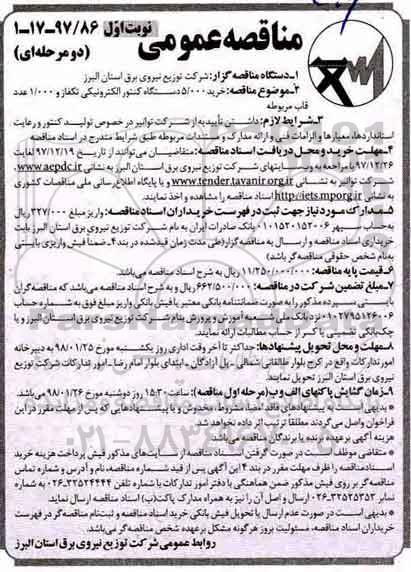 مناقصه عمومی
نوبت اول ۹۷/۸۶-۱۷-۱
(دو مرحله‌ای)
۱-دستگاه مناقصه گزار: شرکت توزیع نیروی برق استان البرز
۲-موضوع مناقصه: خرید ۵/۰۰۰ دستگاه کنتور الکترونیکی تکفاز و ۱/۰۰۰ عدد
قاب مربوطه
۳-شرایط لازم: داشتن تأییدیه از شرکت توانیر در خصوص تولید کنتور و رعایت
استانداردها، معیارها و الزامات فنی و ارائه مدارک و مستندات مربوطه طبق شرایط مندرج در اسناد مناقصه
۴-مهلت خرید و محل دریافت اسناد مناقصه: متقاضیان می‌توانند از تاریخ ۹۷/۱۲/۱۹ لغایت
۹۷/۱۲/۲۶ با مراجعه به وب سایتهای شرکت توزیع نیروی برق استان البرز به نشانی www.aepdc.ir و
شرکت توانیر به نشانی www.tender.tavanir.org.ir و یا پایگاه اطلاع رسانی ملی مناقصات کشوری
به نشانی http://iets.mporg.ir اسناد مناقصه را مشاهده و اخذ نمایند.
۵-مدارک مورد نیاز جهت ثبت در فهرست خریداران اسناد مناقصه: واریز مبلغ ۳۲۷/۰۰۰ ریال به
حساب سپهر ۰۱۰۱۵۲۰۱۵۲۰۰۶ بانک صادرات ایران به نام شرکت توزیع نیروی برق استان البرز بابت
خریداری اسناد مناقصه و ارسال به مناقصه گزار (طی مدت زمان قید شده در بند ۴- ضمناً فیش واریزی بایستی
به نام شخص حقوقی مناقصه‌گر باشد)
۶-قیمت پایه مناقصه: ۱۱/۲۵۰/۰۰۰/۰۰۰ ریال به شرح اسناد مناقصه می‌باشد.
۷-مبلغ تضمین شرکت در مناقصه: ۶۶۲/۵۰۰/۰۰۰ ریال و به شرح اسناد مناقصه می‌باشد که مناقصه‌گران
بایستی سپرده مذکور را به صورت ضمانتنامه بانکی معتبر یا فیش بانکی واریز مبلغ فوق به شماره حساب
۰۱۰۲۷۹۵۱۲۶۰۰۶ نزد بانک ملی شعبه آموزش و پرورش بنام شرکت توزیع نیروی برق استان البرز و یا
چک بانکی تضمینی یا کسر از حساب مطالبات ارائه نمایند.
۸-مهلت و محل تحویل پیشنهادها: حداکثر تا آخر وقت اداری روز یکشنبه مورخ ۹۸/۰۱/۲۵ به دبیرخانه
امور تدارکات واقع در کرج بلوار طالقانی شمالی - پل آزادگان - ابتدای بلوار امام رضا - امور تدارکات شرکت توزیع
نیروی برق استان البرز تحویل نمایند.
۹-زمان گشایش پاکتهای الف و ب (مرحله اول مناقصه): ساعت ۱۵:۳۰ روز دوشنبه مورخ ۹۸/۰۱/۲۶ می‌باشد.
* بدیهی است به پیشنهادهای فاقد امضاء، مشروط، مخدوش و یا پیشنهادهایی که پس از مهلت مقرر در این
فراخوان واصل می‌گردند مطلقا ترتیب اثر داده نخواهد شد.
هزینه آگهی بر عهده برنده یا برندگان مناقصه می‌باشد.
* متقاضی موظف است در صورت گرفتن اسناد مناقصه از سایت‌های مذکور فیش پرداخت هزینه خرید
اسناد مناقصه را ظرف مهلت مقرر در بند ۴ این آگهی پس از قید شماره مناقصه، نام و آدرس و شماره تماس
مناقصه گر بر روی فیش مذکور ضمن هماهنگی با دفتر امور تدارکات با شماره تلفن ۳۲۵۲۴۴۴۴-۰۲۶ به شماره
نمابر ۳۲۵۲۵۳۵۲-۰۲۶ ارسال و اصل آن را نیز به همراه مدارک پاکت (ب) اسناد مناقصه ارسال نماید.
* بدیهی است در صورت عدم ارسال یا تحویل فیش بانکی خرید اسناد مناقصه و ثبت نام مناقصه‌گر در فهرست
خریداران اسناد مناقصه، مسئولیت بروز هرگونه مشکل بر عهده شخص مناقصه‌گر می‌باشد.
روابط عمومی شرکت توزیع نیروی برق استان البرز